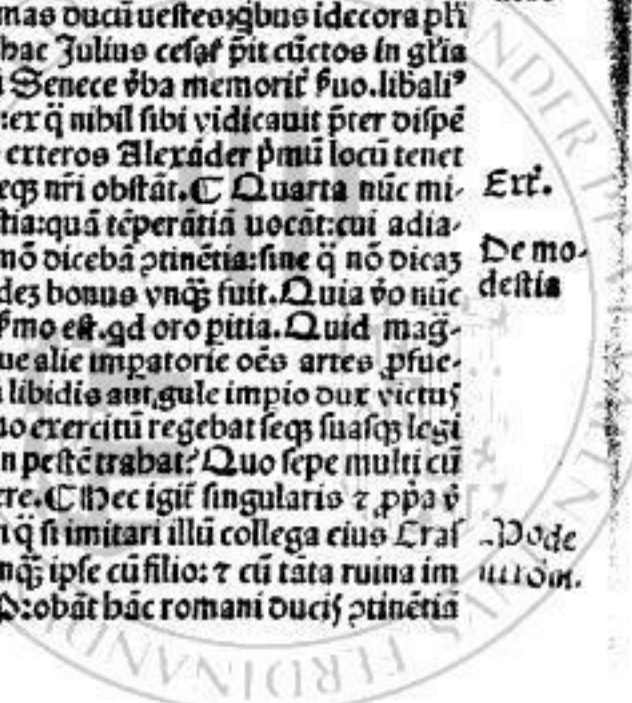 mas ducū uestes: q̇bus idecora pl̄i
hac Julius cesaꝶ p̄it cūctos in gr̄ia
Senece v̄ba memorit̄ ẜuo. libaliꝰ
: ex q̄ nihil sibi vidicauit p̄ter dispē
exteros Alexāder p̄mū locū tenet
eqꝫ nr̄i obstāt. ¶ Quarta nūc mi-
tia: quā tēperātiā uocāt: cui adia-
mō dicebā ꝯtinētia: sine q̄ nō dicaꝫ
deꝫ bonus vnqꝫ̄ fuit. Quia v̄o nūc
est. qd oro ꝑitia. Quid maḡ-
ue alie imꝑatorie oēs artes ꝓfue-
libidis aut gule impio dux victus
uo exercitū regebat seqꝫ suasqꝫ legi
n pestē trabat? Quo sepe multi cū
re. ¶ Hec igit̄ singularis ⁊ ꝓpa v̄
q̄ si imitari illū collega eius Cras
nqꝫ̄ ipse cū filio: ⁊ cū tāta ruina im
Probāt hāc romani ducis ꝯtinētiā
Ext̄.
De mo-
destia
FERDINANDI